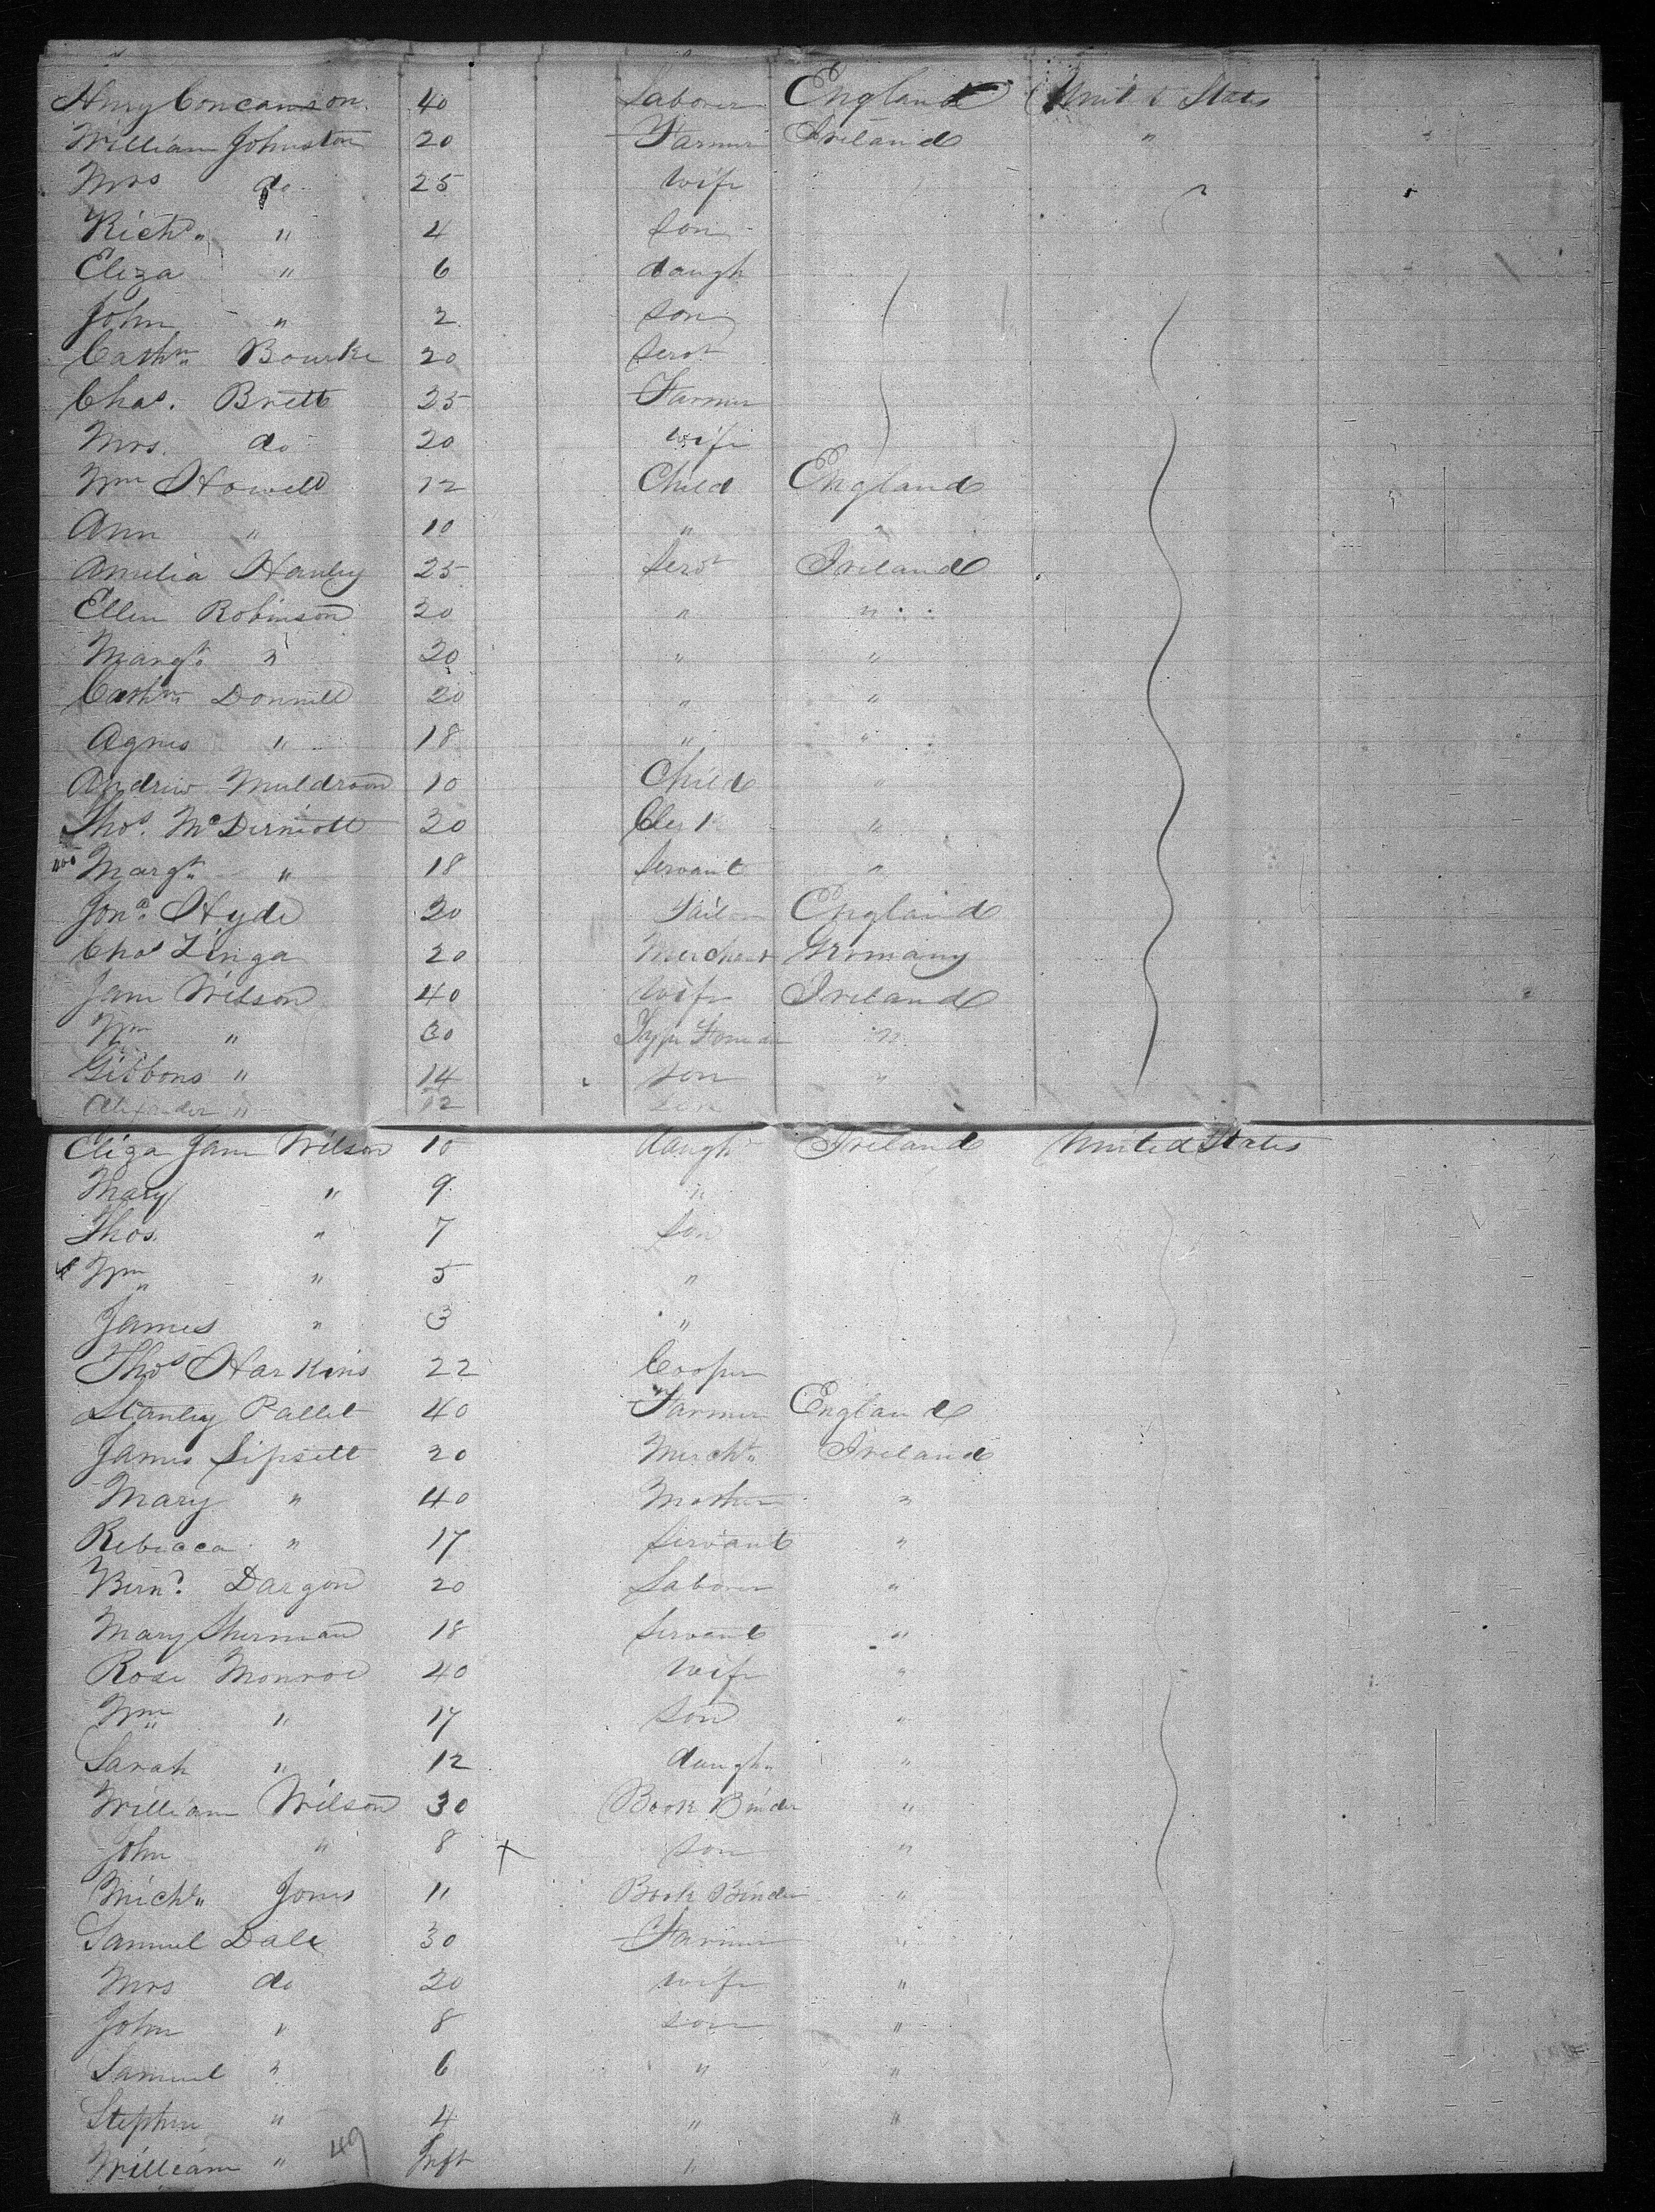 Henry Concannon 40 Laborer England United States
William Johnston 20 Farmer Ireland "
Mrs do 25 wife
Richd " 4 son
Eliza " 6 daugh
John " 2 son
Cathn Bourke 20 servt
Chas. Brett 25 Farmer
Mrs. do 20 wife
Wm Howell 12 Child England
Ann " 10 " "
Amelia Hanley 25 servt Ireland
Ellen Robinson 20 " "
Margt " 20 " "
Cathn Donnell 20 " "
Agnes " 18 " "
Andrew Muldroon 10 Child "
Thos. McDermott 20 Clerk "
400 Margt " 18 servant "
Jona. Hyde 20 England
Chas Linga 20 Merchant Germany
Jane Wilson 40 wife Ireland
Wm " 30 Type Founder "
Gibbons " 14 son "
Alexander " 12 son
Eliza Jane Wilson 10 daugh Ireland United States
Mary " 9 "
Thos. " 7 son
Wm " 5 "
James " 3 "
Thos Harkins 22 Cooper
Stanley Pallet 40 Farmer England
James Lipsett 20 Mercht Ireland
Mary " 40 Mother "
Rebecca " 17 servant "
Bernd. Dargon 20 Laborer "
Mary Sherman 18 servant "
Rose Monroe 40 wife "
Wm " 17 son "
Sarah " 12 daugh "
William Wilson 30 Book Binder "
John " 8 x son "
Michl Jones 11 Book Binder "
Samuel Dale 30 Farmer "
Mrs do 20 wife "
John " 8 son "
Samuel " 6 " "
Stephen " 4 " "
William " 49 Inft "